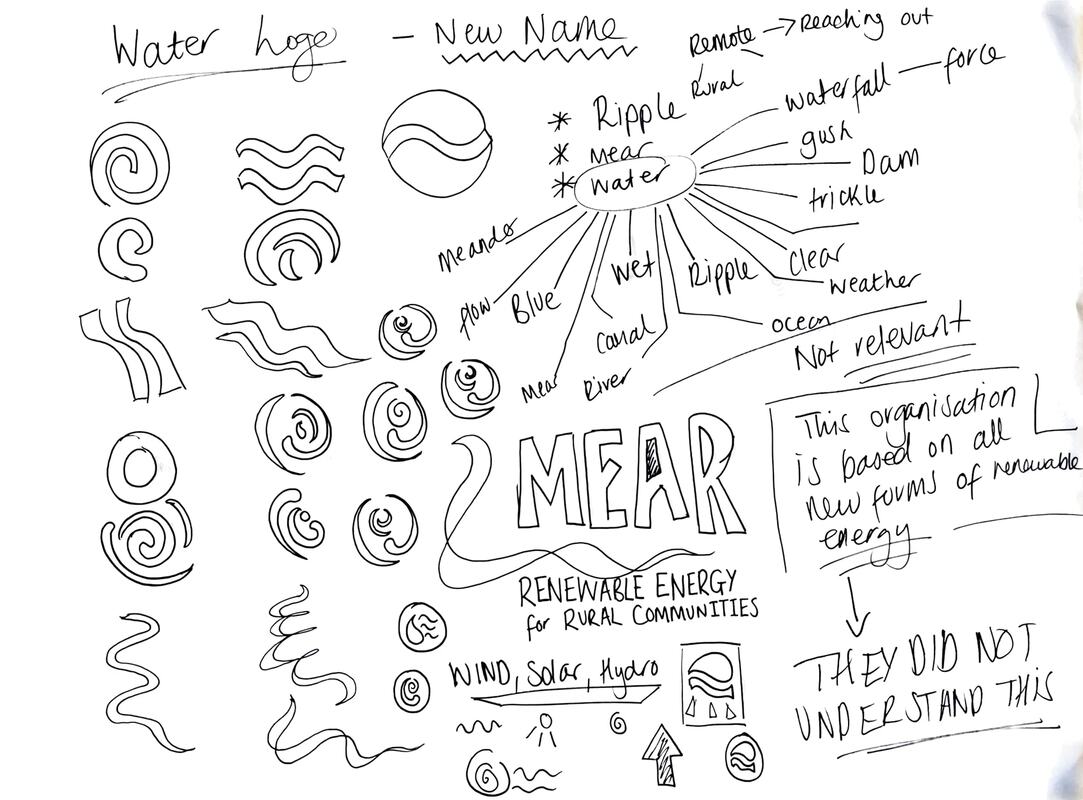 Water hoge - New Name
Remote → Reaching out
Rural
* Ripple
* Mear
* Water
waterfall — force
gush
Dam
trickle
clear
weather
ocean
Ripple
Wet
Canal
River
Mear
Blue
flow
Not relevant
This organisation
is based on all
new forms of renewable
energy
THEY DID NOT
UNDERSTAND THIS
MEAR
RENEWABLE ENERGY
for RURAL COMMUNITIES
WIND, Solar, Hydro